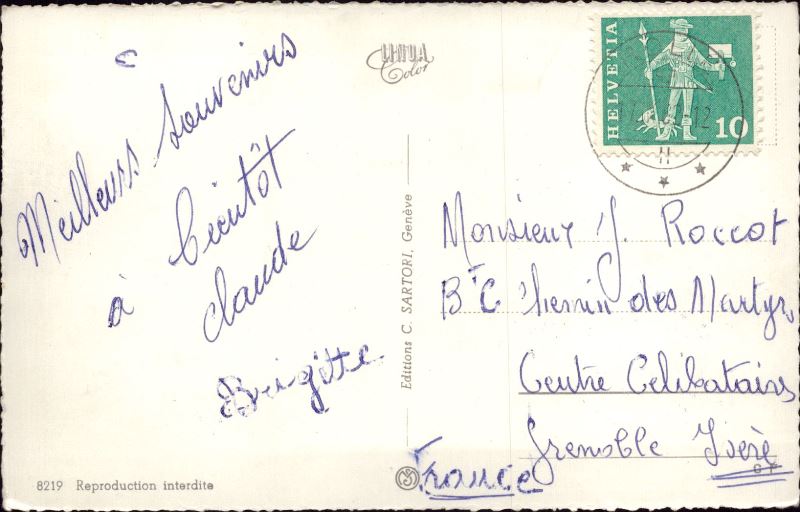 Meilleurs Souvenirs
à bientôt
Claude
Brigitte
8219 Reproduction interdite
Editions C. SARTORI, Genève
Color
HELVETIA
10
12
II
Monsieur J. Roccot
Bt C Chemin des Martyrs
Centre Celibataires
Grenoble Isère
France